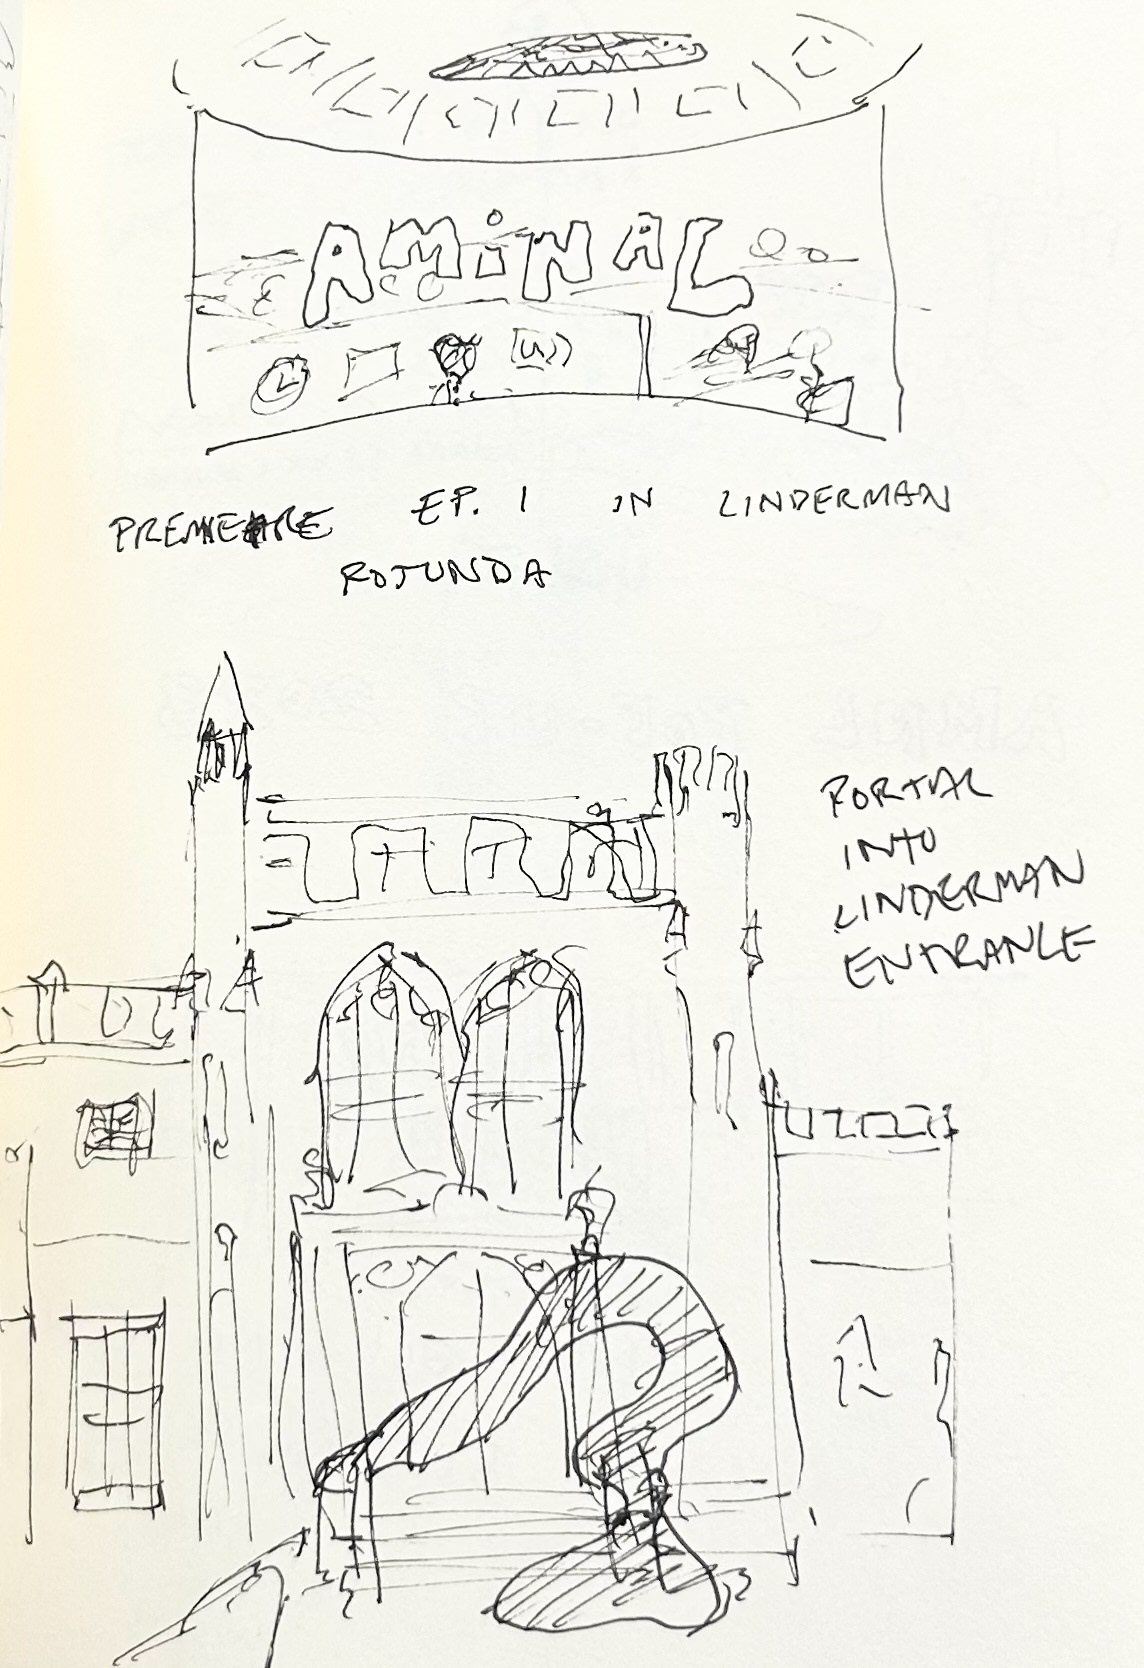 AMiNAL
PREMIERE EP. 1 IN LINDERMAN
ROTUNDA
PORTAL
INTO
LINDERMAN
ENTRANCE